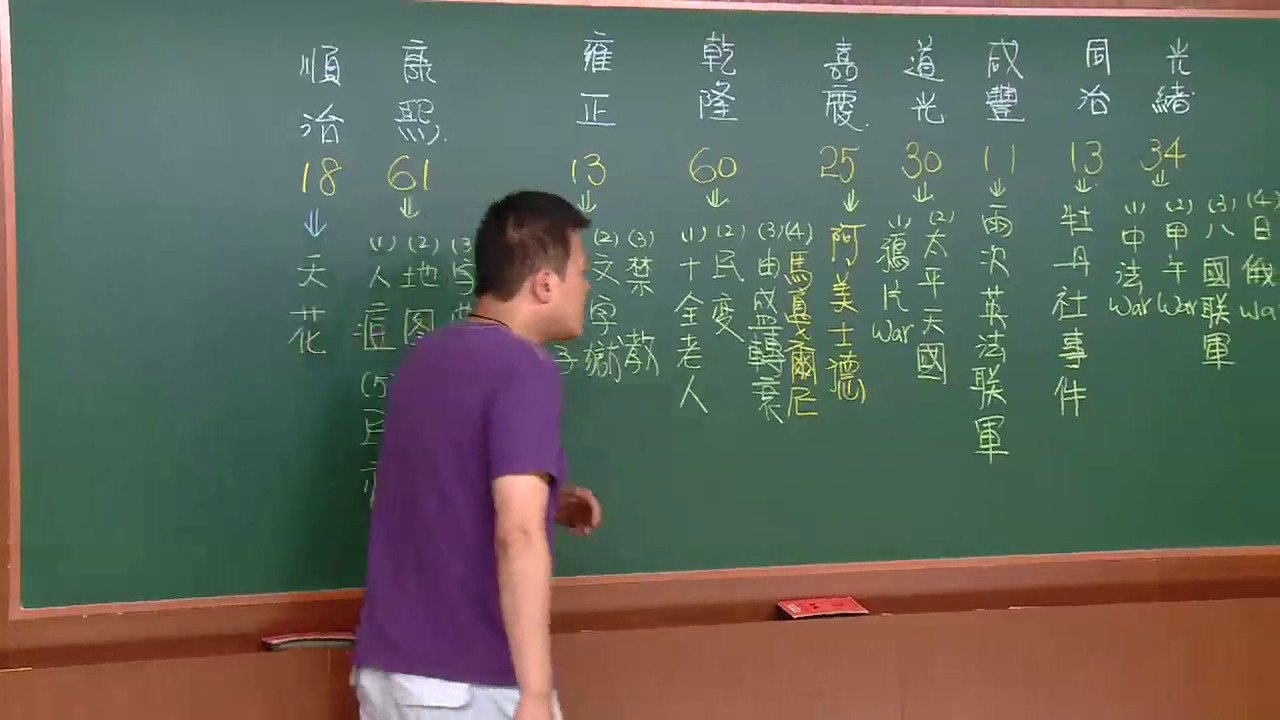 順治
18
↓
天花
康熙
61
↓
(1)人痘
(2)地图
(3)字
(5)民
雍正
13
↓
子
(2)文字獄
(3)禁教
乾隆
60
↓
(1)十全老人
(2)民變
(3)由盛轉衰
(4)馬戛爾尼
嘉慶
25
↓
阿美士德
道光
30
↓
(1)鴉片War
(2)太平天國
咸豐
11
↓
兩次英法联軍
同治
13
↓
牡丹社事件
光緒
34
↓
(1)中法War
(2)甲午War
(3)八國联軍
(4)日俄Wa